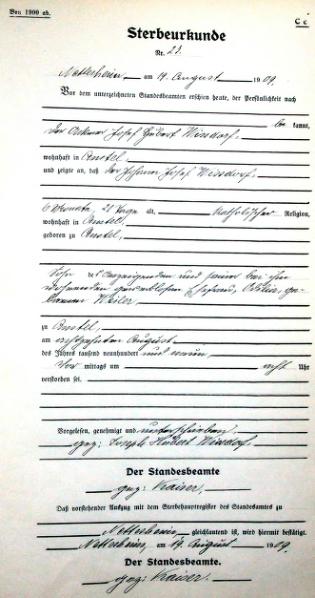 Von 1900 ab.
C c
Sterbeurkunde
Nr. 23.
am 19. August 1909.
Vor dem unterzeichneten Standesbeamten erschien heute, der Persönlichkeit nach
be kannt,
der Ackerer Josef Hubert Winsdorf.
wohnhaft in Anstel,
und zeigte an, daß der Johann Josef Winsdorf.
6 Monate, 21 Tage alt, katholischer Religion,
wohnhaft in Anstel,
geboren zu Anstel,
Sohn des Anzeigenden und seiner bei ihm
wohnenden gewerblosen Ehefrau, Ottilie, ge-
borenen Weiler
zu Anstel,
am achtzehnten August
des Jahres tausend neunhundert und neun,
Vor mittags um acht Uhr
verstorben sei.
Vorgelesen, genehmigt und unterschrieben.
gez: Joseph Hubert Winsdorf.
Der Standesbeamte
gez: Kaiser.
Daß vorstehender Auszug mit dem Sterbehauptregister des Standesamtes zu
gleichlautend ist, wird hiermit bestätigt.
am 19. August 1909.
Der Standesbeamte.
gez: Kaiser.